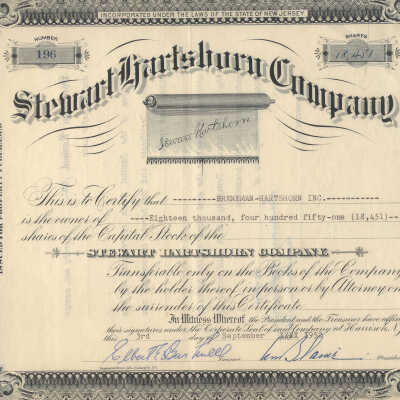 INCORPORATED UNDER THE LAWS OF THE STATE OF NEW JERSEY
NUMBER
196
SHARES
18,451
Stewart Hartshorn Company
Stewart Hartshorn
This is to Certify that ---------BRENEMAN-HARTSHORN INC.-----------
is the owner of ----Eighteen thousand, four hundred fifty-one (18,451)---
shares of the Capital Stock of the
STEWART HARTSHORN COMPANY
Transferable only on the Books of the Company
by the holder thereof in person or by Attorney on
the surrender of this Certificate.
In Witness Whereof the President and the Treasurer have affixed
their signatures under the Corporate Seal of said Company at Harrison, N.J.
this 3rd day of September